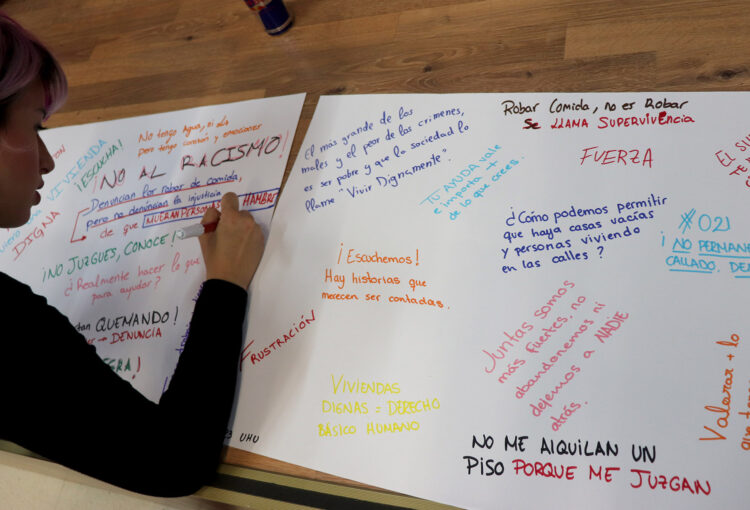 VIVIENDA
DIGNA
¡ESCUCHA!
No tengo Agua, ni
pero tengo corazón y emociones
¡NO AL RACISMO!
Denuncian por robar de comida,
pero no denuncian la injusticia
de que MUERAN PERSONAS HAMBRE
¡NO JUZGUES, CONOCE!
¿Realmente hacer lo que
para ayudar?
QUEMANDO!
→ DENUNCIA
FRUSTRACIÓN
UHU
El mas grande de los
males y el peor de los crimenes,
es ser pobre y que la sociedad lo
llame "Vivir Dignamente".
TU AYUDA vale
e importa +
de lo que crees.
¡Escuchemos!
Hay historias que
merecen ser contadas.
VIVIENDAS
DIGNAS = DERECHO
BÁSICO HUMANO
ROBAR COMIDA, NO ES ROBAR
SE LLAMA SUPERVIVENCIA
FUERZA
¿Cómo podemos permitir
que haya casas vacías
y personas viviendo
en las calles?
Juntas somos
más fuertes, no
abandonemos ni
dejemos a NADIE
atrás.
NO ME ALQUILAN UN
PISO PORQUE ME JUZGAN
El
#021
¡NO
CALLADO.
Valorar + lo
que